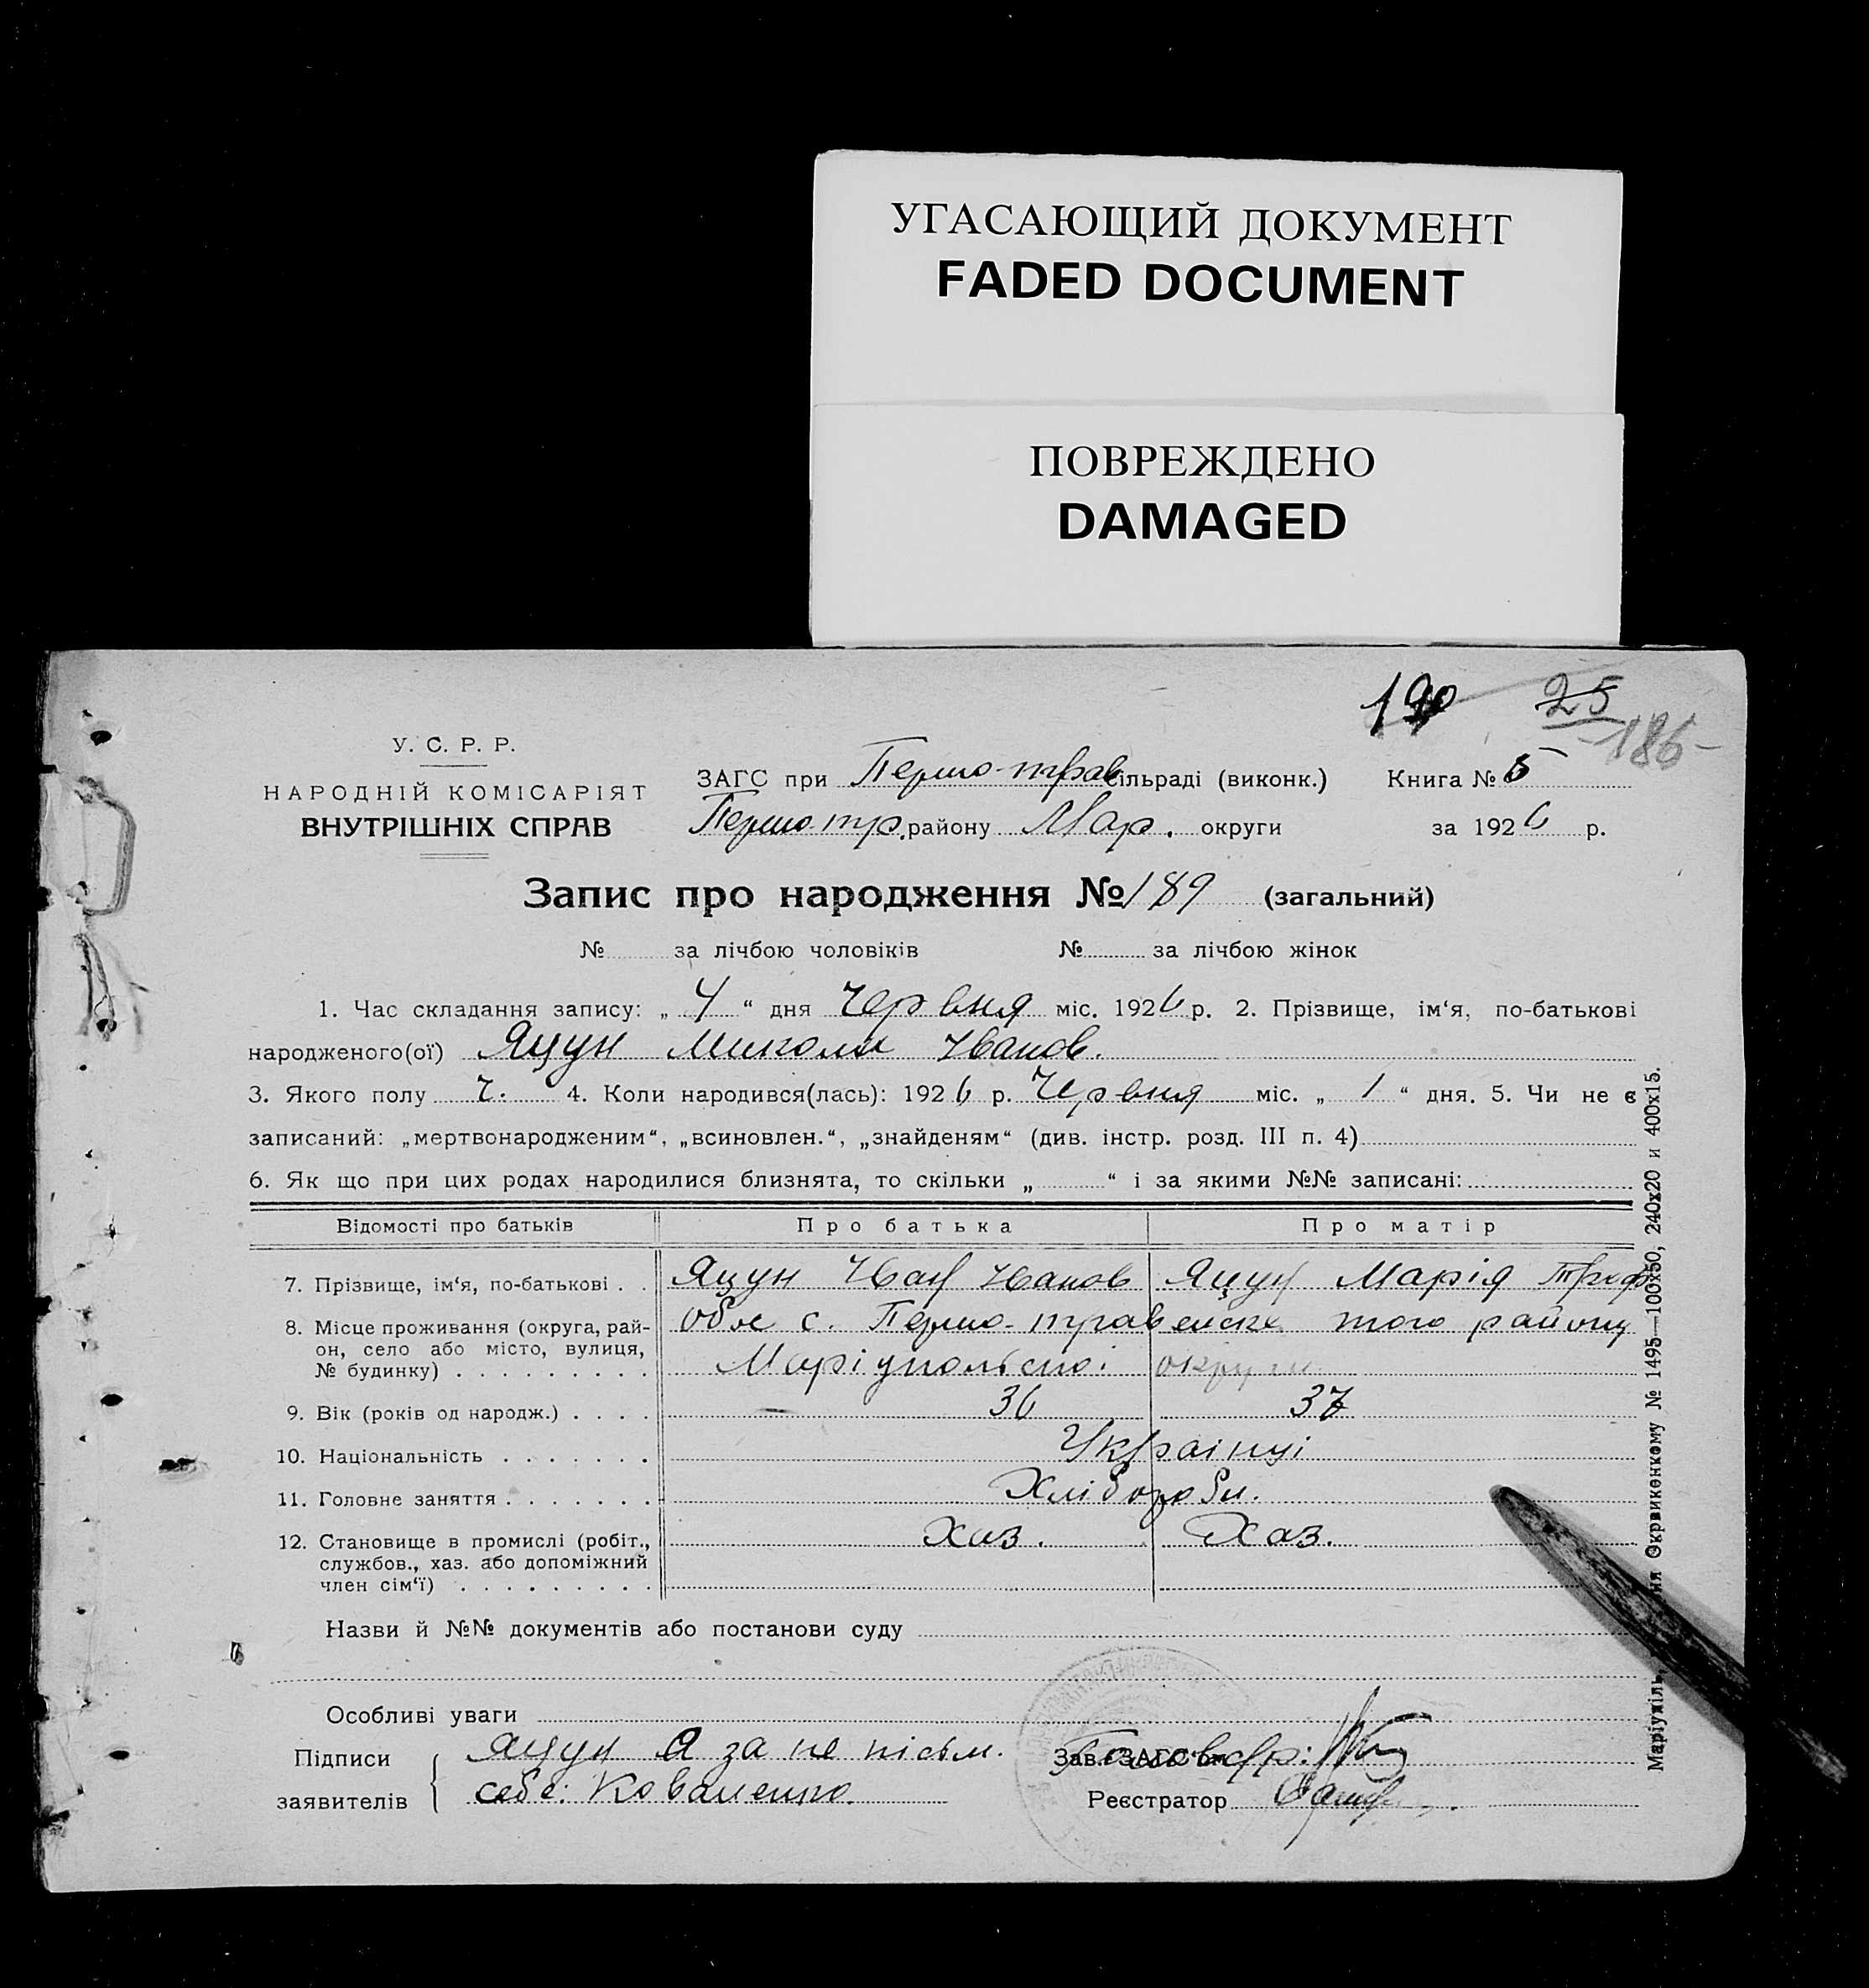 УГАСАЮЩИЙ ДОКУМЕНТ
FADED DOCUMENT
ПОВРЕЖДЕНО
DAMAGED
25
186-
У. С. Р. Р.
НАРОДНІЙ КОМІСАРІЯТ
ВНУТРІШНІХ СПРАВ
ЗАГС при Першо-трав сільраді (виконк.) Книга № 5
Першо тр. району Мар. округи за 1926 р.
Запис про народження № 189 (загальний)
№ за лічбою чоловіків № за лічбою жінок
1. Час складання запису: „ 4 “ дня Червня міс. 1926 р. 2. Прізвище, ім‘я, по-батькові
народженого(ої) Яцун Микола Іванов.
3. Якого полу ч. 4. Коли народився(лась): 1926 р. Червня міс. „ 1 “ дня. 5. Чи не є
записаний: „мертвонародженим“, „всиновлен.“, „знайденям“ (див. інстр. розд. III п. 4)
6. Як що при цих родах народилися близнята, то скільки „ “ і за якими №№ записані:
Відомості про батьків Про батька Про матір
7. Прізвище, ім‘я, по-батькові . . Яцун Іван Іванов Яцун Марія Троф
8. Місце проживання (округа, рай-
он, село або місто, вулиця,
№ будинку) . . . . . . . . .
с. Першо-травенске того району
Маріупольської округи
9. Вік (років од народж.) . . . . 36 37
10. Національність . . . . . . . Українці
11. Головне заняття . . . . . . . Хлібороби.
12. Становище в промислі (робіт.,
службов., хаз. або допоміжний
член сім‘ї) . . . . . . . . .
Хаз. Хаз.
Назви й №№ документів або постанови суду
Особливі уваги
Підписи Яцун А за не пісьм. Зав. ЗАГС‘ом
заявителів себе: Коваленко. Реєстратор
Маріупіль, Окрвиконкому № 1495—100х50, 240х20 и 400х15.